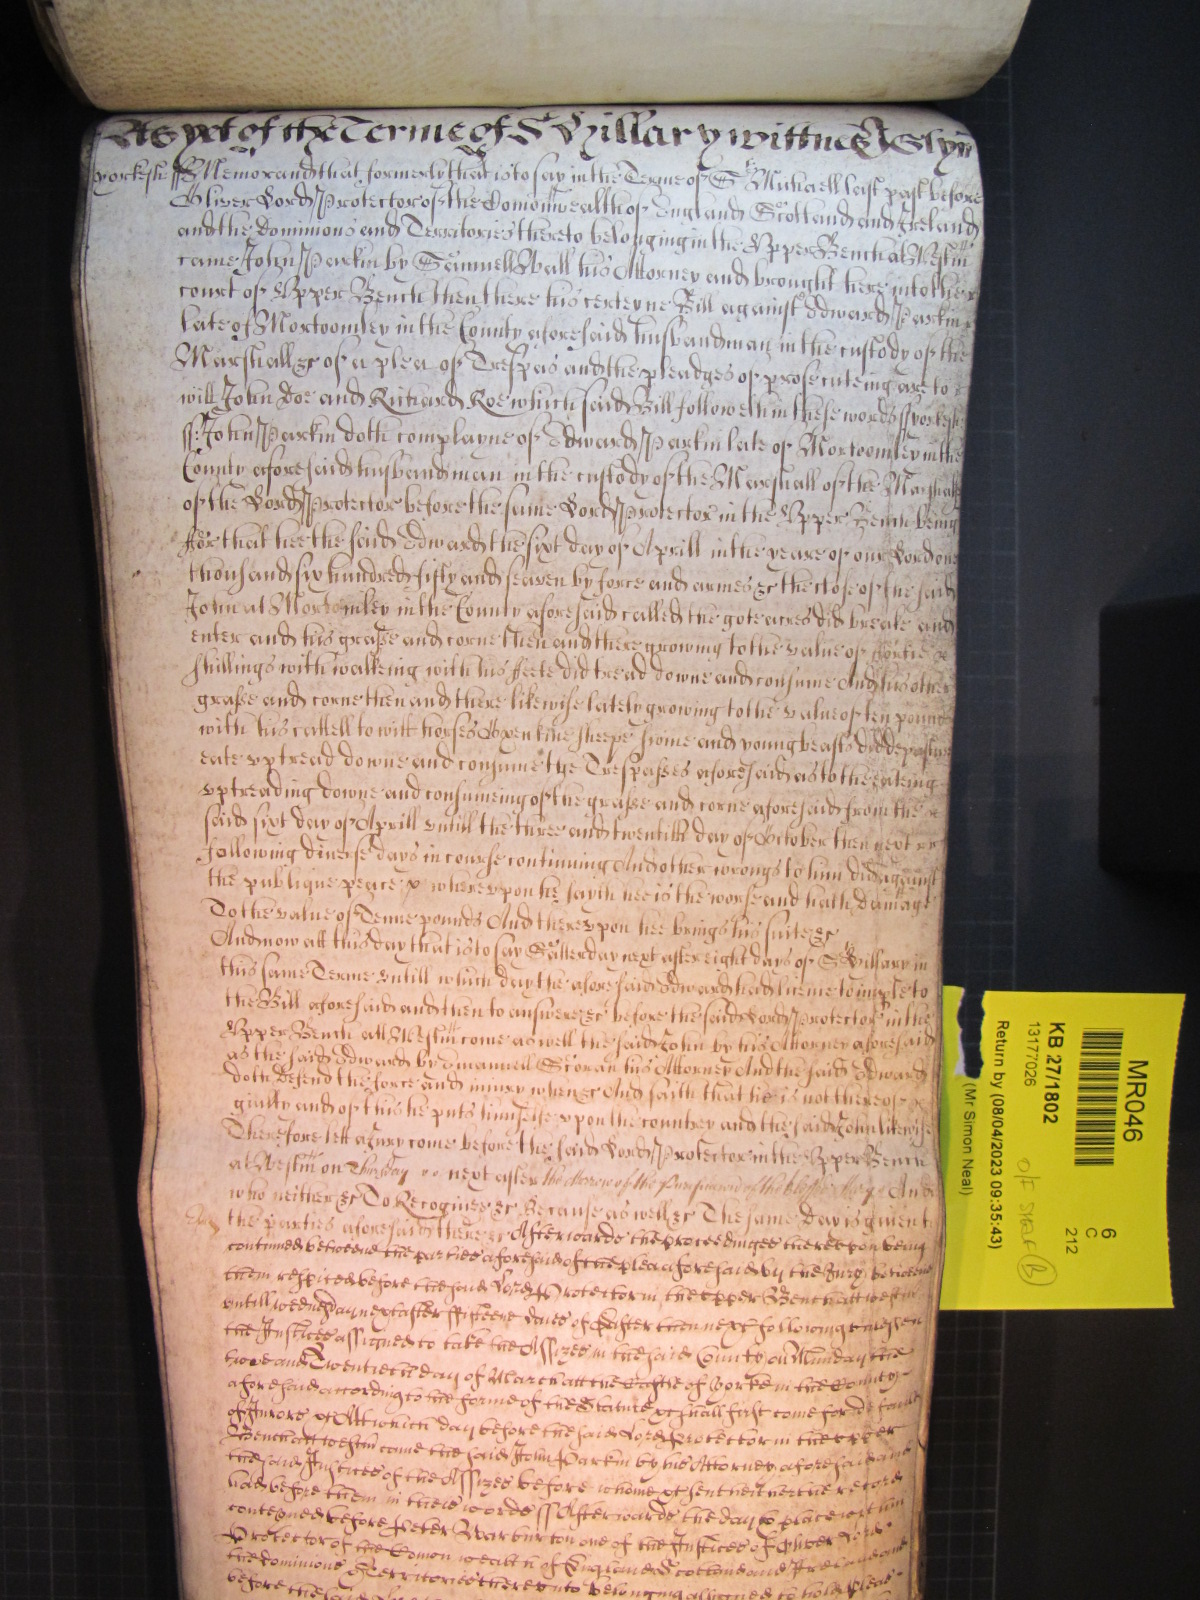 As yet of the Terme of St Hillary wittnes Glyn
Yorkeshr ss Memorand that formerly that is to say in the Terme of St Michaell last past before
Oliver Lord Protector of the Comonwealth of England Scotland and Ireland
and the Dominions and Territories thereto belonging in the Upper Bench at Westm
came John Parkin by Samuell Wall his Attorney and brought here into the
court of Upper Bench then there his certeyne Bill against Edward Parkin
late of Mortoomley in the County aforesaid husbandman in the custody of the
Marshall &c of a plea of Trespas and the pleadges of prosecuteing are to
witt John Doe and Richard Roe which said Bill followeth in these words ss Yorkeshr
ss John Parkin doth complayne of Edward Parkin late of Mortoomley in the
County aforesaid husbandman in the custody of the Marshall of the Marshals
of the Lord Protector before the same Lord Protector in the Upper Bench being
for that hee the said Edward the sixt day of Aprill in the yeare of our Lord one
thousand six hundred fifty and seaven by force and armes &c the close of the said
John at Mortomley in the County aforesaid called the gote acres did breake and
enter and his grasse and corne then and there growing to the value of fortie
shillings with walkeing with his feete did tread downe and consume And his other
grasse and corne then and there likewise lately growing to the value of ten pounds
with his cattell to witt horses Oxen kine sheepe swine and young beasts did depasture
eate up tread downe and consume the Trespasses aforesaid as to the eateing
up treading downe and consumeing of the grasse and corne aforesaid from the
said sixt day of Aprill untill the three and twentith day of October then next
following diverse days in course continuing And other wrongs to him did against
the publique peace whereupon he saith hee is the worse and hath damage
To the value of Tenne pounds And thereupon hee brings his suite &c
And now att this day that is to say Satterday next after eight days of St Hillary in
this same Terme untill which day the aforesaid Edward had licence to imparle to
the Bill aforesaid and then to answere &c before the said Lord Protector in the
Upper Bench att Westm come as well the said John by his Attorney aforesaid
as the said Edward by Emanuell his Attorney And the said Edward
doth defend the force and iniury when &c And saith that he is not thereof
guilty and of this he puts himselfe upon the country and the said John likewise
Therefore lett a Jury come before the said Lord Protector in the Upper Bench
at Westm on Thursday next after the Morrow of the Purificacion of the blessed Mary And
who neither &c To Recognise &c Because as well &c The same day is given to
the parties aforesaid there &c Afterwards the proceedinges thereupon being
continued betweene the parties aforesaid of the plea aforesaid by the Jury betweene
them respited before the said Lord Protector in the Upper Bench att Westm
untill wednesday next after fifteene dayes of Easter then next following unlesse
the Justices assigned to take the Assizes in the said County on Munday the
two and Twentieth day of March att the Castle of Yorke in the County
aforesaid according to the forme of the Statute &c shall first come for default
of Jurors &c Att which day before the said Lord Protector in the Upper
Bench att Westm come the said John Parkin by his Attorney aforesaid and
the said Justices of the Assizes before whome &c sent heither the record
had before them in these words ss Afterwards the day & place within
conteyned before Peter Warburton one of the Justices of Oliver Lord
Protector of the Comon wealth of England Scotland and Ireland and
the Dominions & Territories thereunto belonging assigned to hold pleas
before the said
MR046
6
C
212
KB 27/1802
13177026
Return by (08/04/2023 09:35:43)
(Mr Simon Neal)
O/F Shelf (B)